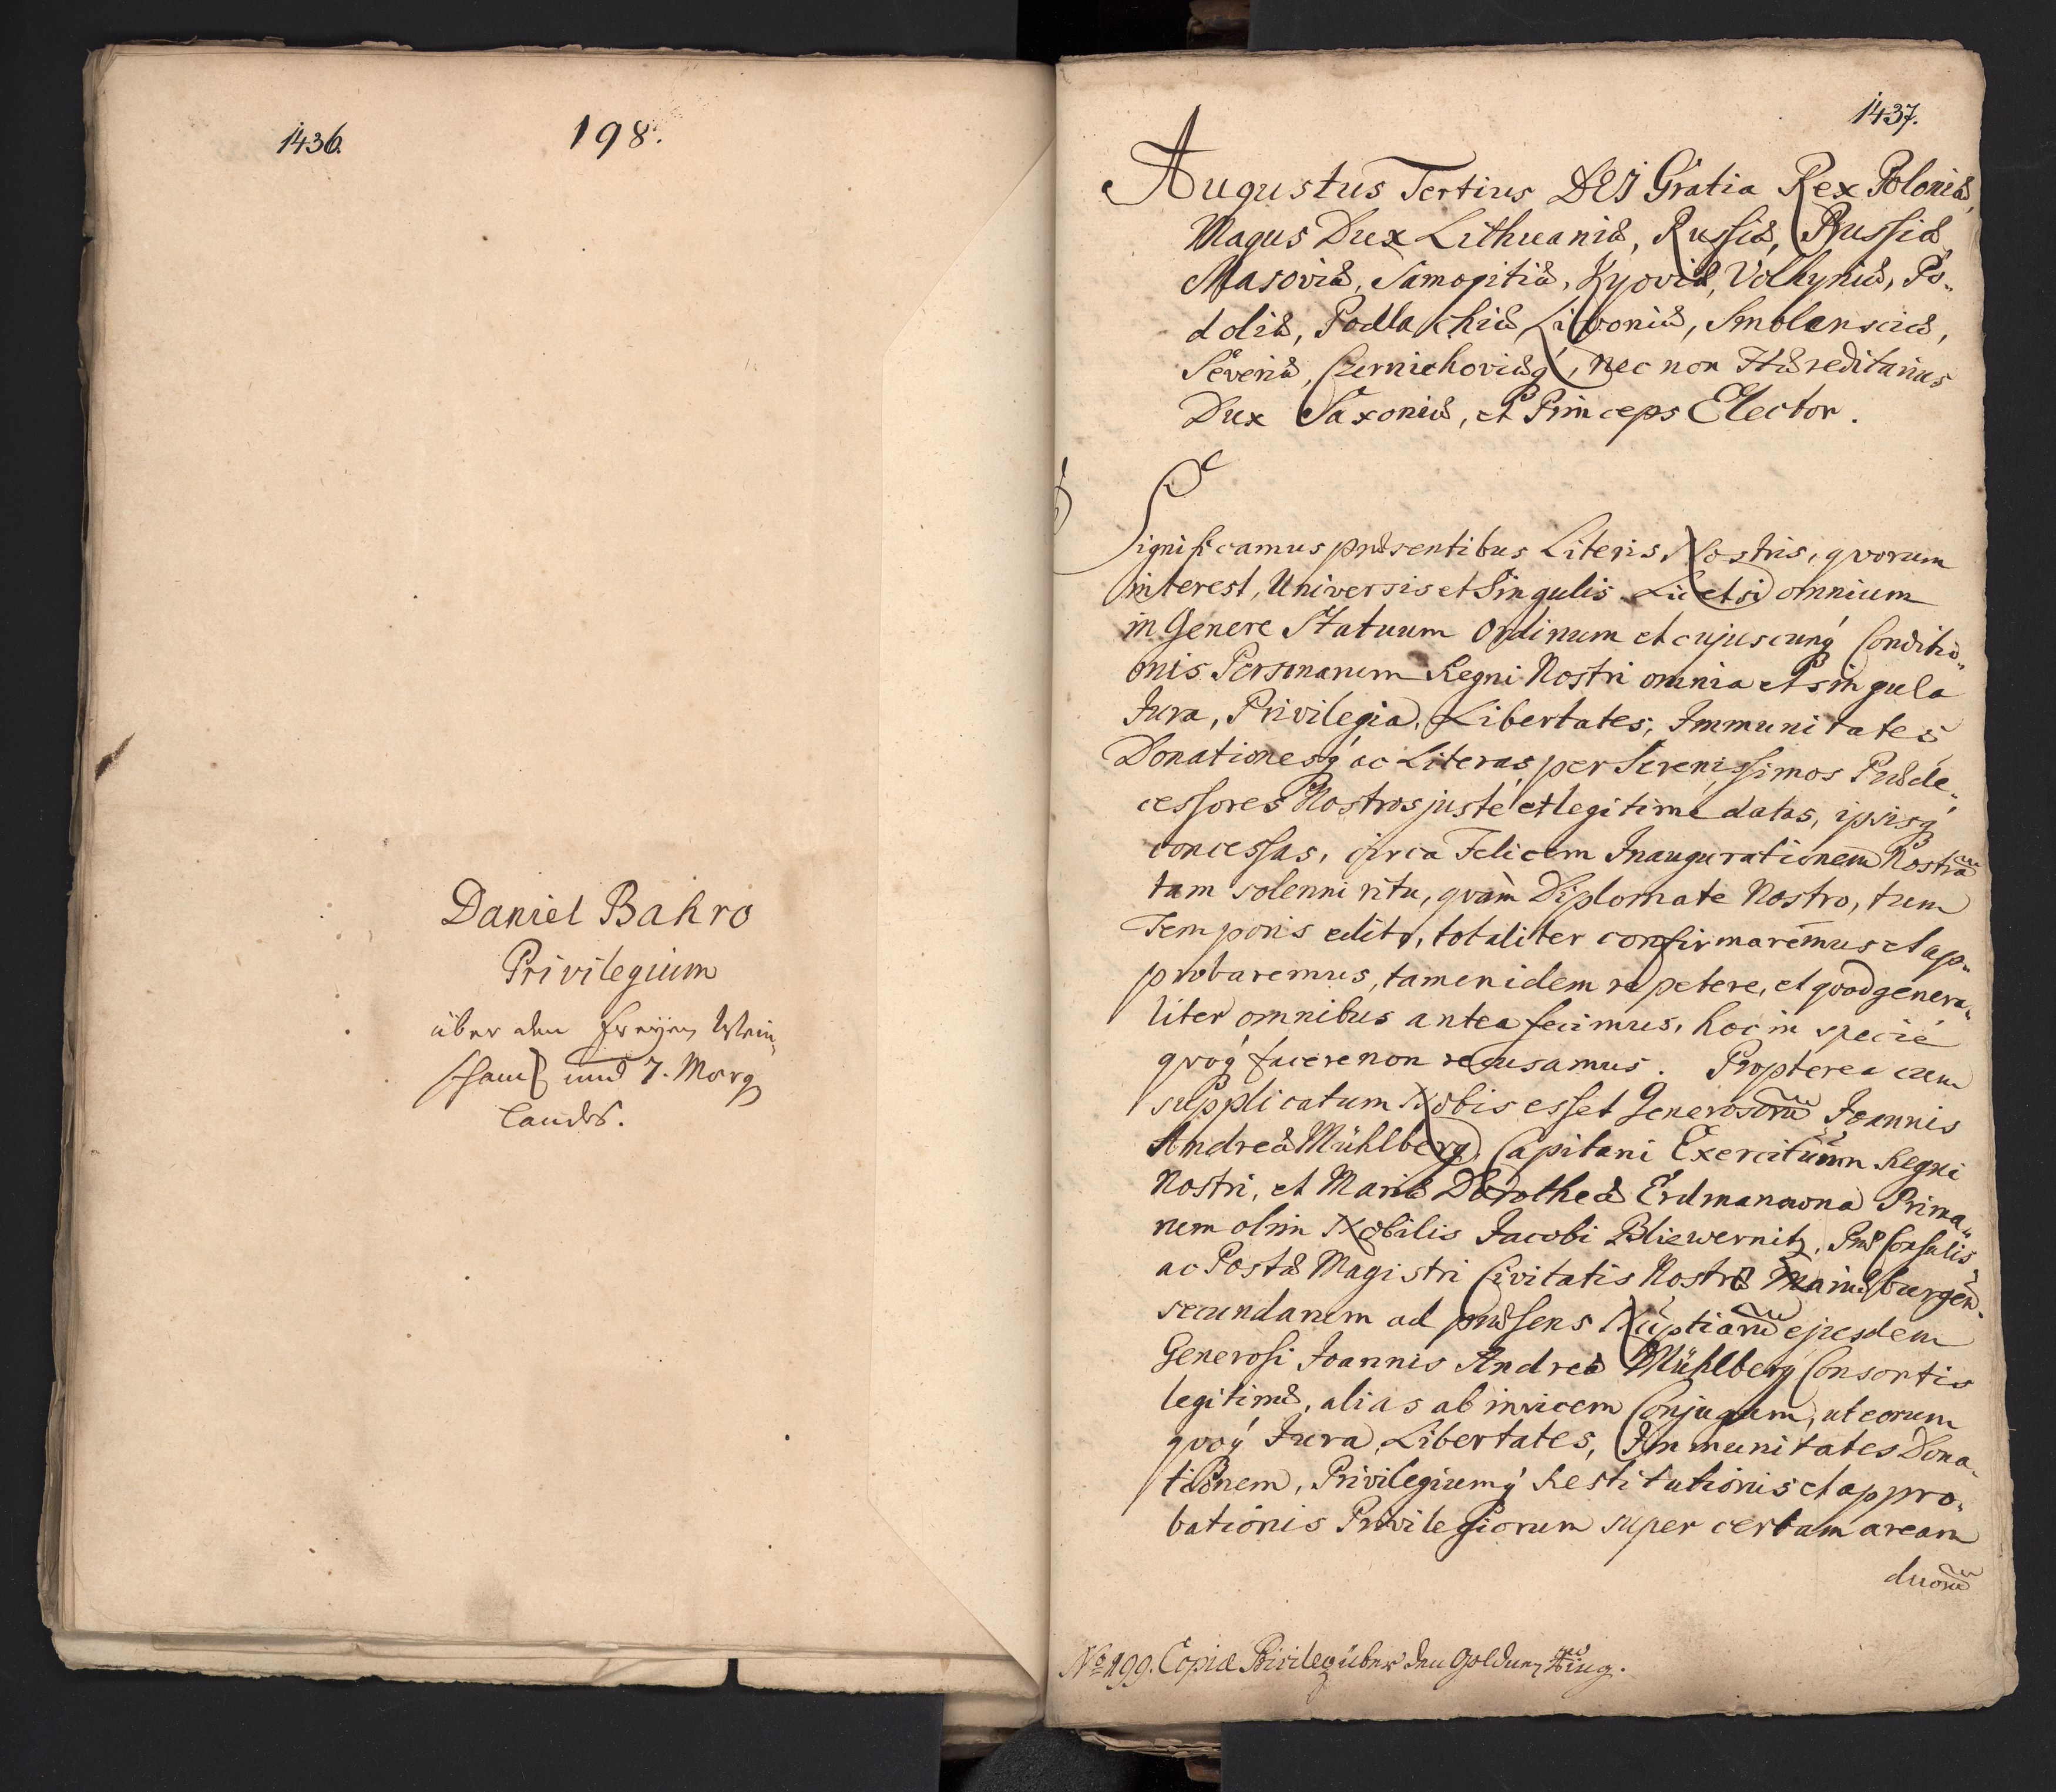 1436.
198.
Daniel Bahro
Privilegium
über den freyen Wein„
schanck und 7. Morg
Landes.
1437.
Augustus Tertius DEI Gratia Rex Poloniæ,
Magus Dux Lithuaniæ, Russiæ, Prussiæ,
Masoviæ, Samogitiæ, Kyoviæ, Volhyniæ, Po„
doliæ, Podlachiæ Livoniæ, Smolensciæ,
Severiæ, Czernichoviæq́, nec non Hæreditarius
Dux Saxoniæ, et Princeps Elector.
Significamus præsentibus Literis Nostris, qvorum
interest, Universis et Singulis. Licet si omnium
in Genere Statuum Ordinum et cujuscunq́ Conditio„
onis Personarum Regni Nostri omnia et singula
Jura, Privilegia, Libertates, Immunitates
Donationesq́ ac Literas per Serenissimos Præde„
cessores Nostros juste et legitime datas, ipsisq́
concessas, circa Felicem Inaugurationem Nostrã
tam solenni ritu, qvàm Diplomate Nostro, tum
Temporis edito, totaliter confirmaremus et ap„
probaremus, tamen idem repetere, et qvod genera„
liter omnibus antea fecimus, hoc in specie
qvoq́ facere non recusamus. Propterea cum
supplicatum Nobis esset Generosorũ Joannis
Andreæ Mühlberg, Capitani Exercituum Regni
Nostri, et Mariæ Dorotheæ Erdmanowna Prima„
rum olim Nobilis Jacobi Bliewernitz, Præ Consulis
ac Postæ Magistri Civitatis Nostræ Mariæburgen̄.
secundarum ad præsens Nuptiarũ ejusdem
Generosi Joannis Andreæ Mühlberg Consortis
legitimæ, alias ab invicem Conjugum, ut eorum
qvoq́ Jura, Libertates, Immunitates Dona„
tionem, Privilegiumq́ Restitutionis et appro„
bationis Privilegiorum super certam aream
duorũ
No 199. Copiæ Privileg über den Goldnen Ring.